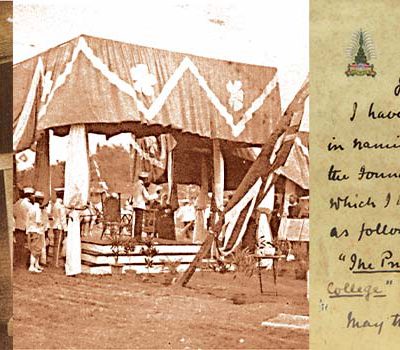 I have
in nami
the Foun
which I
as follo
"The Pr
College"
May th